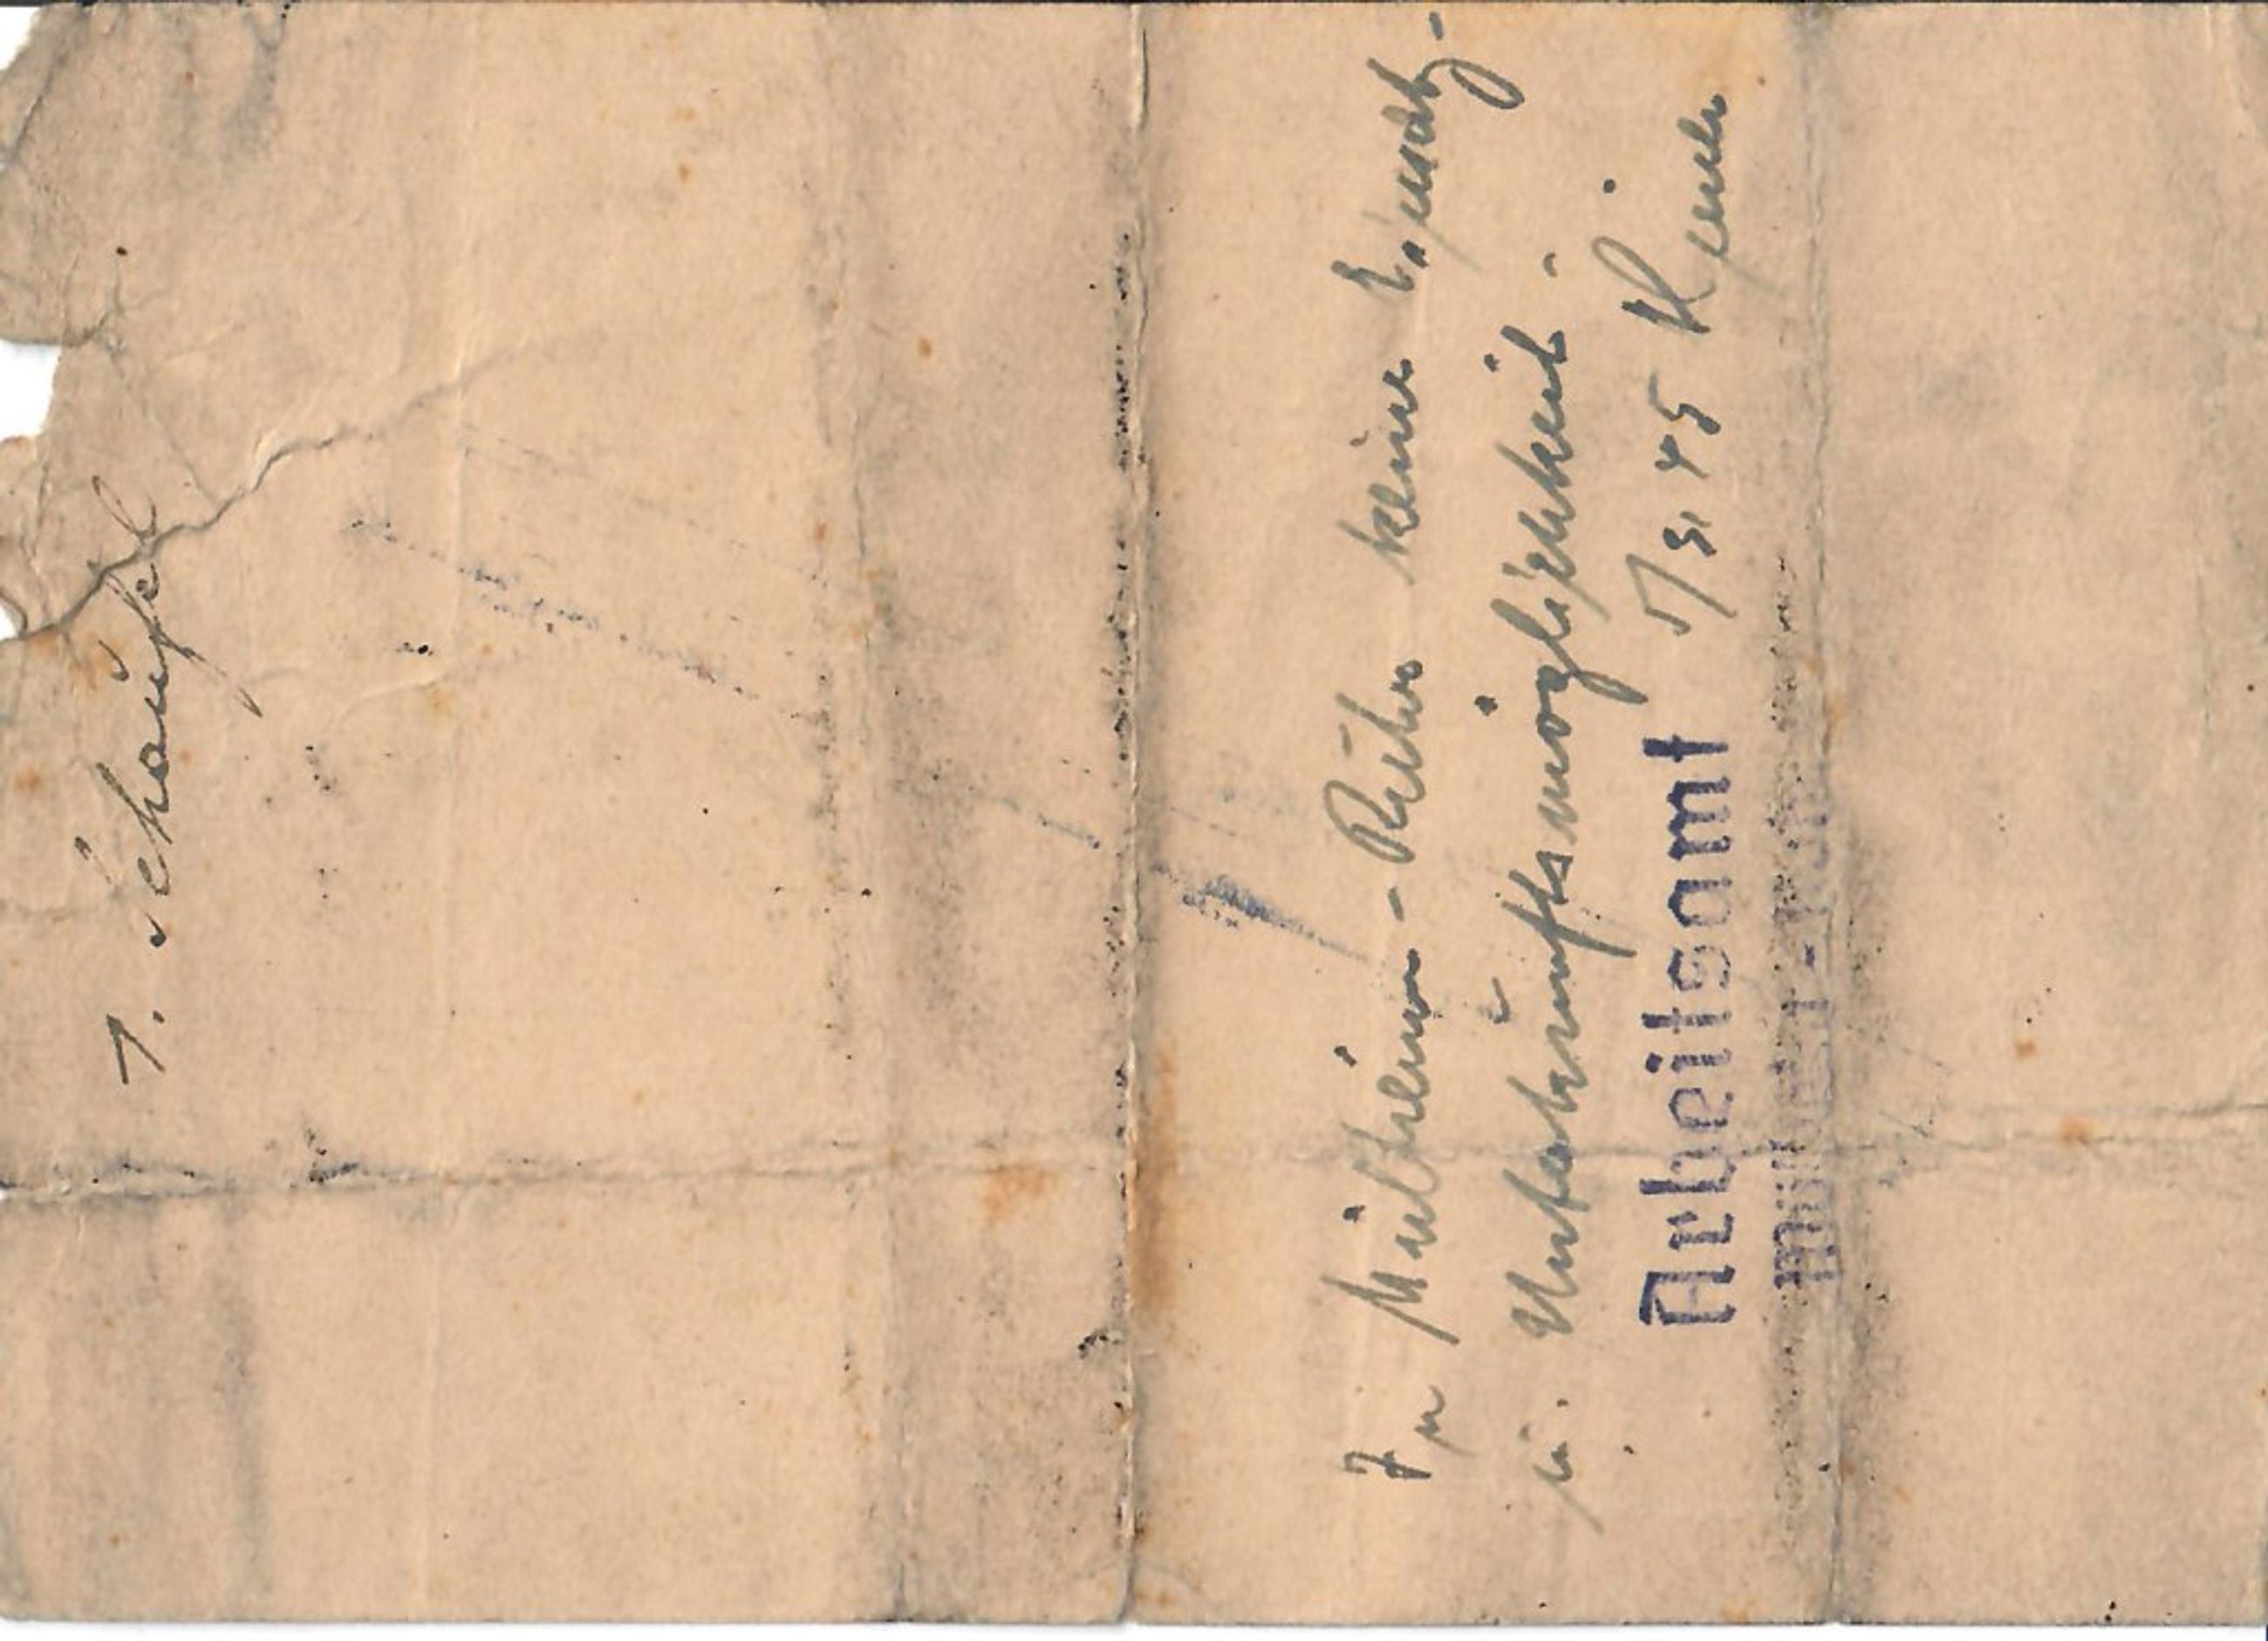 1. Schaufel
In Mülheim-Ruhr keine Einsatz-
u. Unterkunftsmöglichkeit.
5/3.45
Arbeitsamt